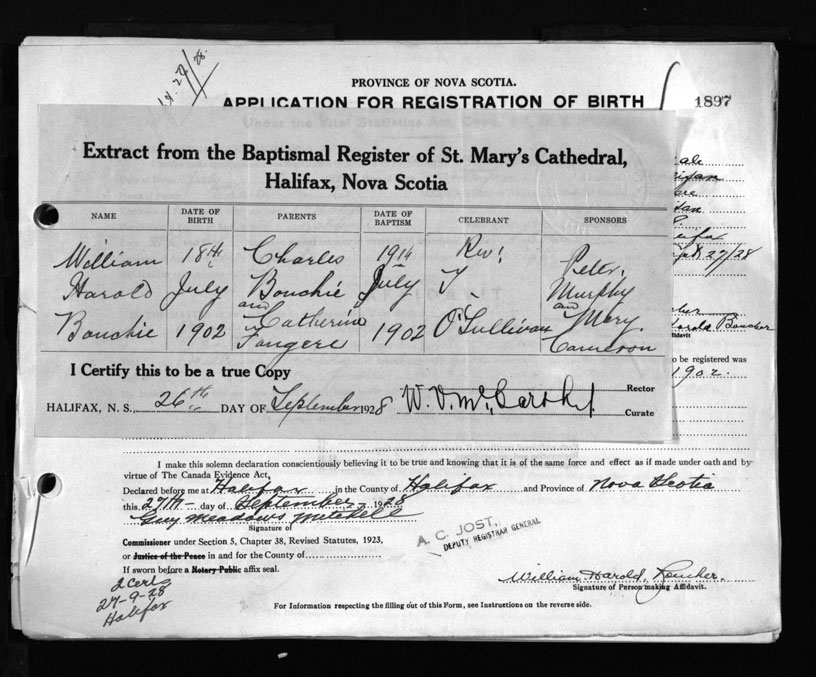 PROVINCE OF NOVA SCOTIA.
APPLICATION FOR REGISTRATION OF BIRTH
1897
Under the Vital Statistics Act,
Extract from the Baptismal Register of St. Mary's Cathedral,
Halifax, Nova Scotia
NAME DATE OF BIRTH PARENTS DATE OF BAPTISM CELEBRANT SPONSORS
William 18th Charles 19th Rev. Peter
Harold July Bouchie July T. Murphy
and and
Bouchie 1902 Catherine 1902 O'Sullivan Mary
Fougere Cameron
27/28
Harold Boucher
o be registered was
1902.
I Certify this to be a true Copy
HALIFAX, N. S., 26th DAY OF September 1928 W. V. McCarthy
Rector
Curate
I make this solemn declaration conscientiously believing it to be true and knowing that it is of the same force and effect as if made under oath and by
virtue of The Canada Evidence Act.
Declared before me at Halifax in the County of Halifax and Province of Nova Scotia
this 27th day of September 1928
Guy Meadows Mitchell
Signature of
Commissioner under Section 5, Chapter 38, Revised Statutes, 1923,
or Justice of the Peace in and for the County of
If sworn before a Notary Public affix seal.
A. C. JOST,
DEPUTY REGISTRAR GENERAL
William Harold Boucher.
Signature of Person making Affidavit.
2 Certs
27-9-28
Halifax
For Information respecting the filling out of this Form, see Instructions on the reverse side.